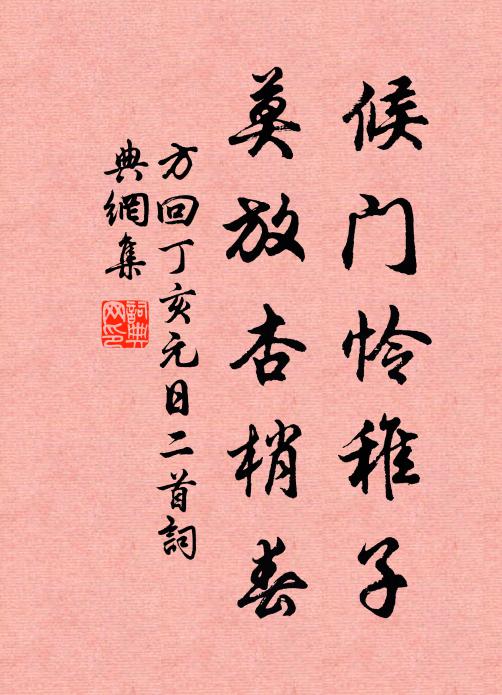 候门怜稚子
莫放杏梢春
方回丁亥元日二首詞
典網集
詞典
网印